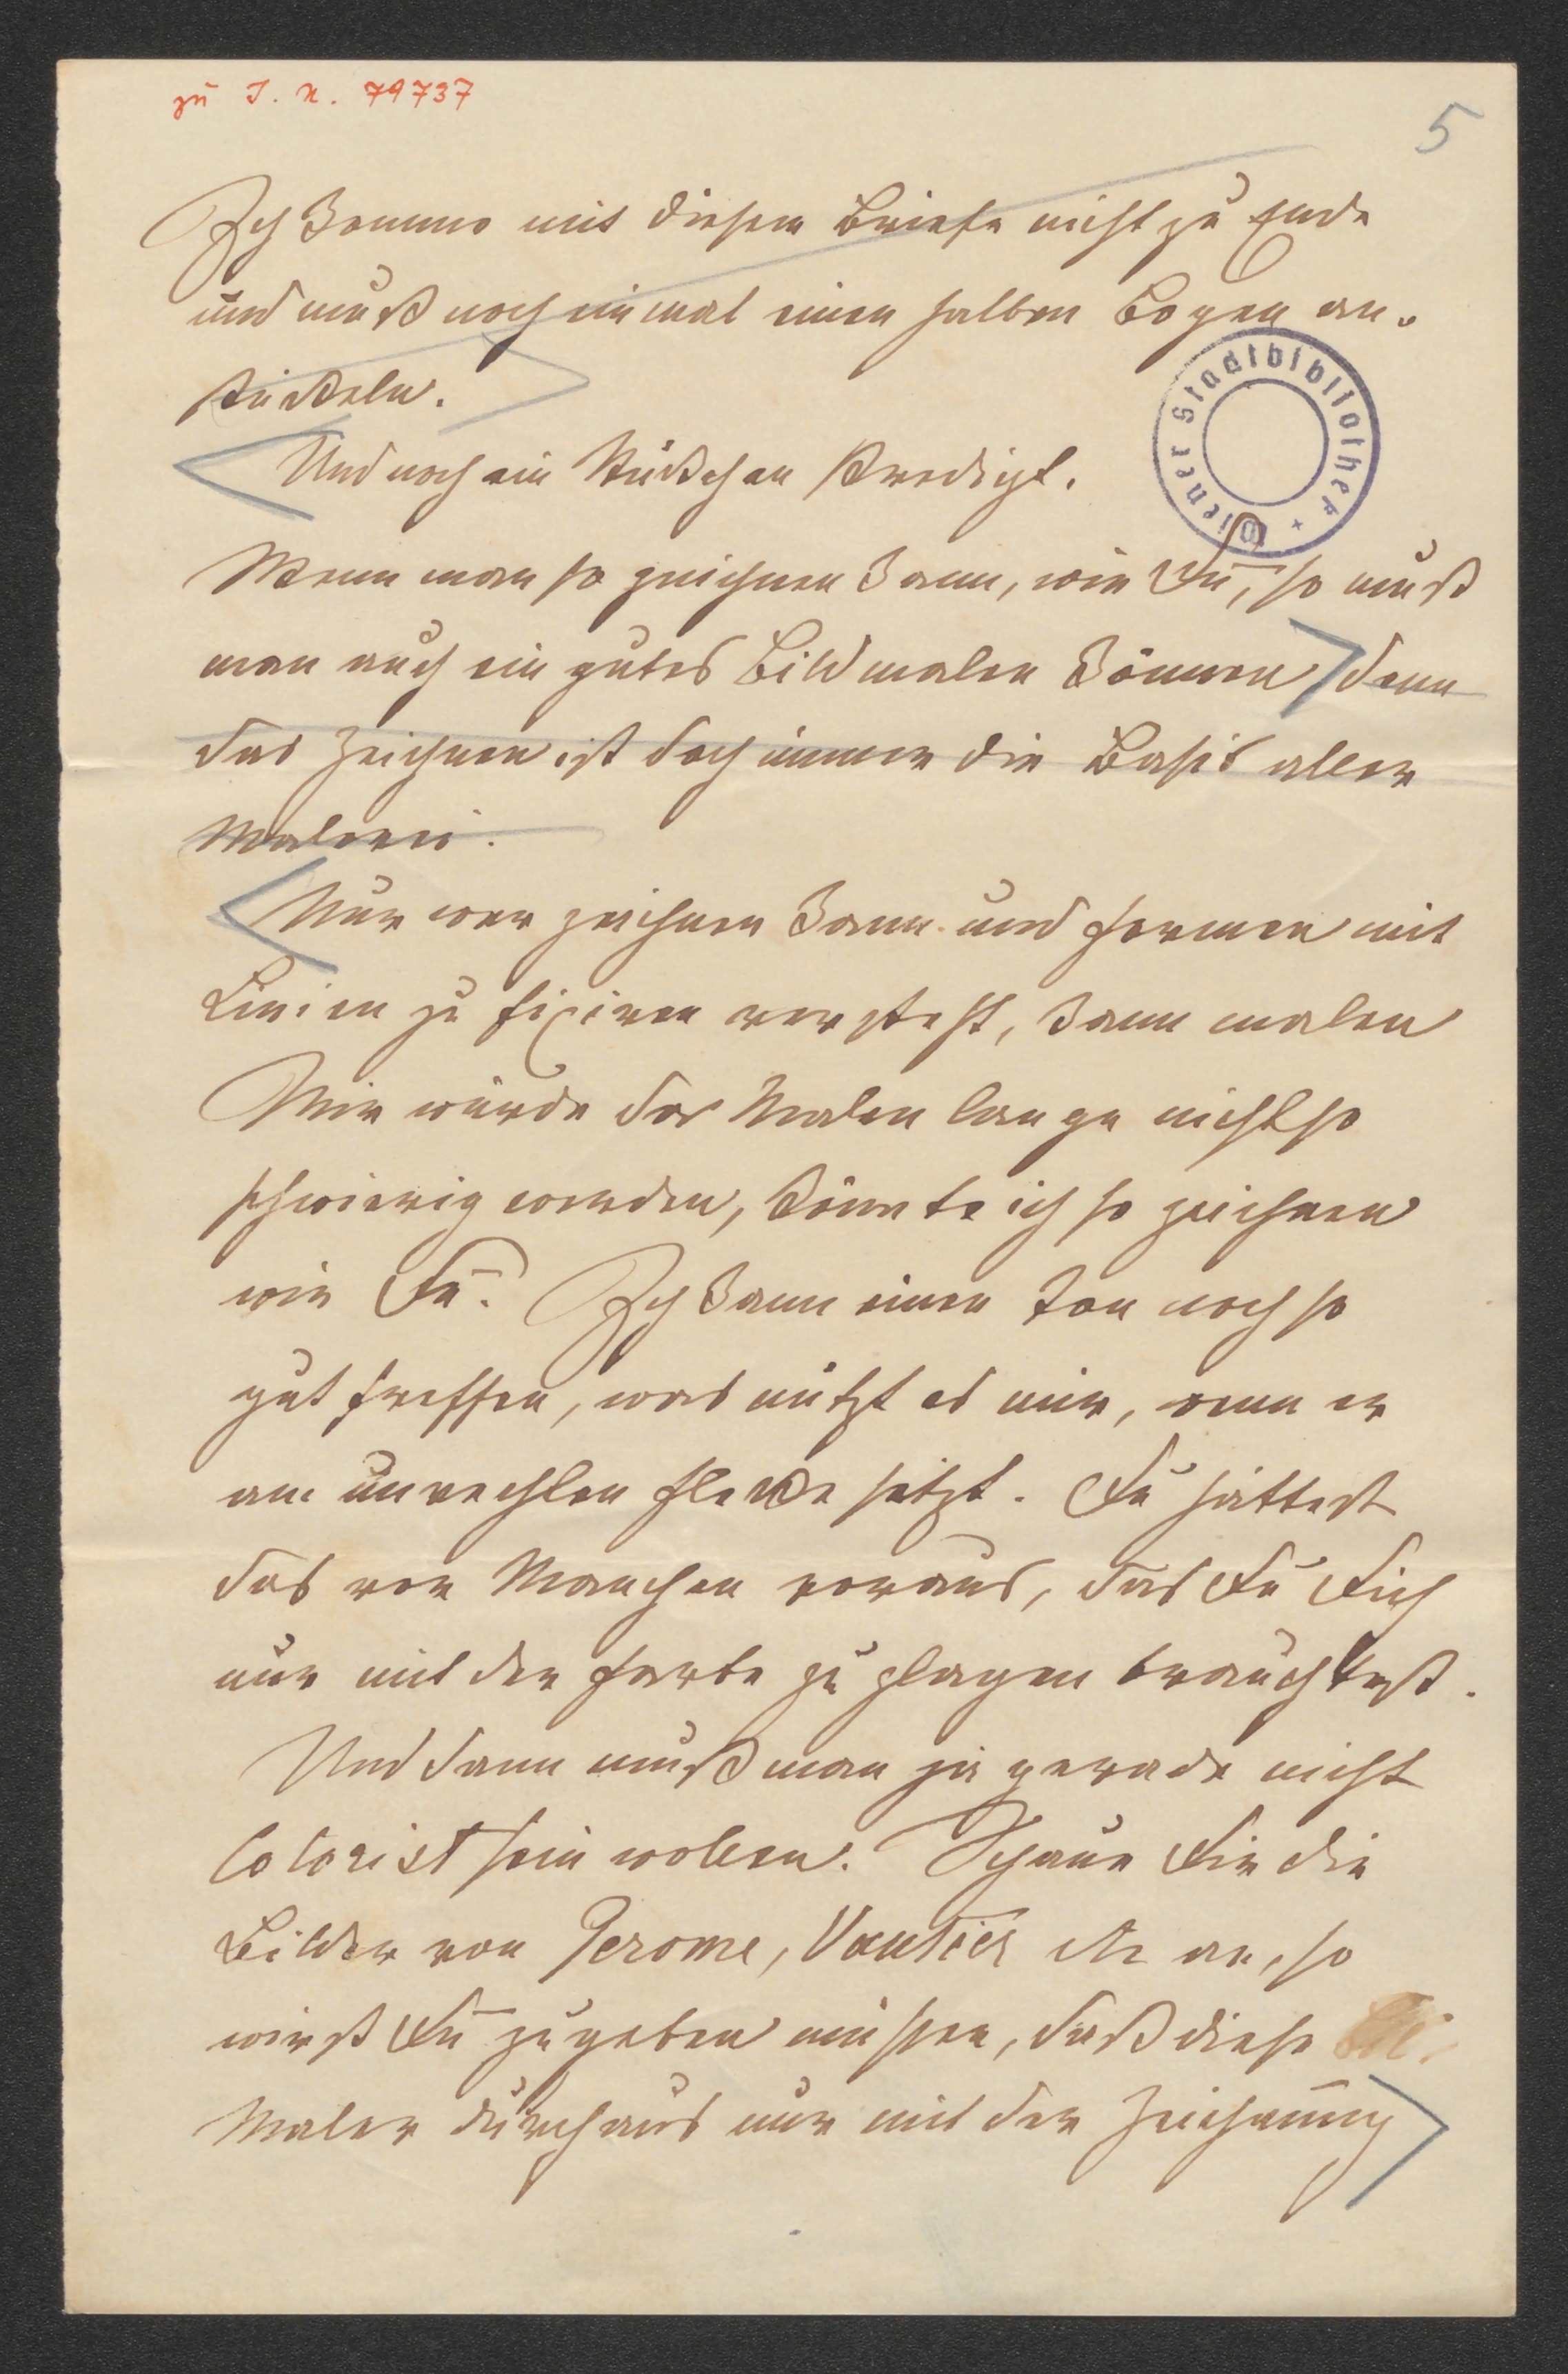 zu I. N. 79737
5
Ich komme mit diesem Briefe nicht zu Ende
und muß noch einmal einen halben Bogen an-
stückeln.
Wiener Stadtbibliothek +
Und noch ein Stückchen Predigt.
Wenn man so zeichnen kann, wie Du, so muß
man auch ein gutes Bild malen können denn
das Zeichnen ist doch immer die Basis aller
Malerei.
Nur wer zeichnen kann und Formen mit
Linien zu fixiren versteht, kann malen
Mir würde das Malen lange nicht so
schwierig werden, könnte ich so zeichnen
wie Du. Ich kann einen Ton noch so
gut treffen, was nützt es mir, wenn er
am unrechten Flecke sitzt. Du hättest
das vor Manchen voraus, das Du Dich
nur mit der Farbe zu plagen brauchtest.
Und dann muß man ja gerade nicht
Colorist sein wollen. Schaue Dir die
Bilder von Jerome, Vautier etc an, so
wirst Du zugeben müssen, daß diese
Maler durchaus nur mit der Zeichnung